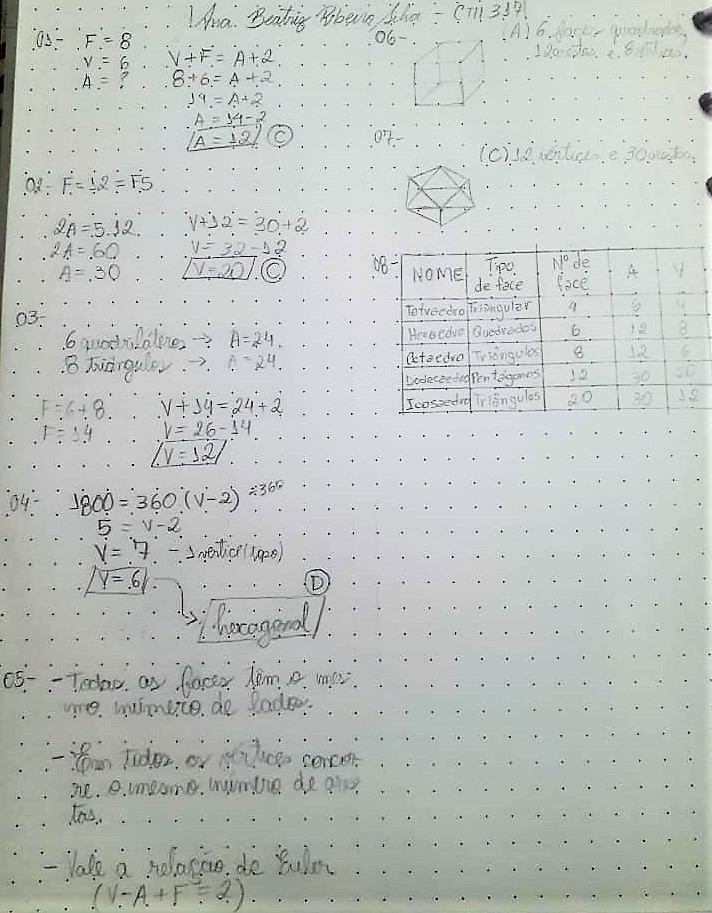 Ana Beatriz Ribeiro Silva - CTII 317
01- F = 8
V = 6
A = ?
V+F = A+2
8+6 = A+2
14 = A+2
A = 14-2
A = 12 C
02- F = 12 = F5
2A = 5.12
2A = 60
A = 30
V+12 = 30+2
V = 32-12
V = 20 C
03-
6 quadriláteros → A=24
8 triângulos → A=24
F = 6+8
F = 14
V+14 = 24+2
V = 26-14
V = 12
04- 1800 = 360 (V-2) ÷360
5 = V-2
V = 7 - 1 vértice (topo)
V = 6
D
hexagonal
05- - Todas as faces têm o mes
mo número de lados.
- Em todos os vértices concor
re o mesmo número de ares
tas.
- Vale a relação de Euler
(V-A+F = 2)
06-
(A) 6 faces quadradas,
12 arestas e 8 vértices.
07-
(C) 12 vértices e 30 arestas.
08-
NOME Tipo de face Nº de face A V
Tetraedro Triangular 4 6 4
Hexaedro Quadrados 6 12 8
Octaedro Triângulos 8 12 6
Dodecaedro Pentágonos 12 30 20
Icosaedro Triângulos 20 30 12